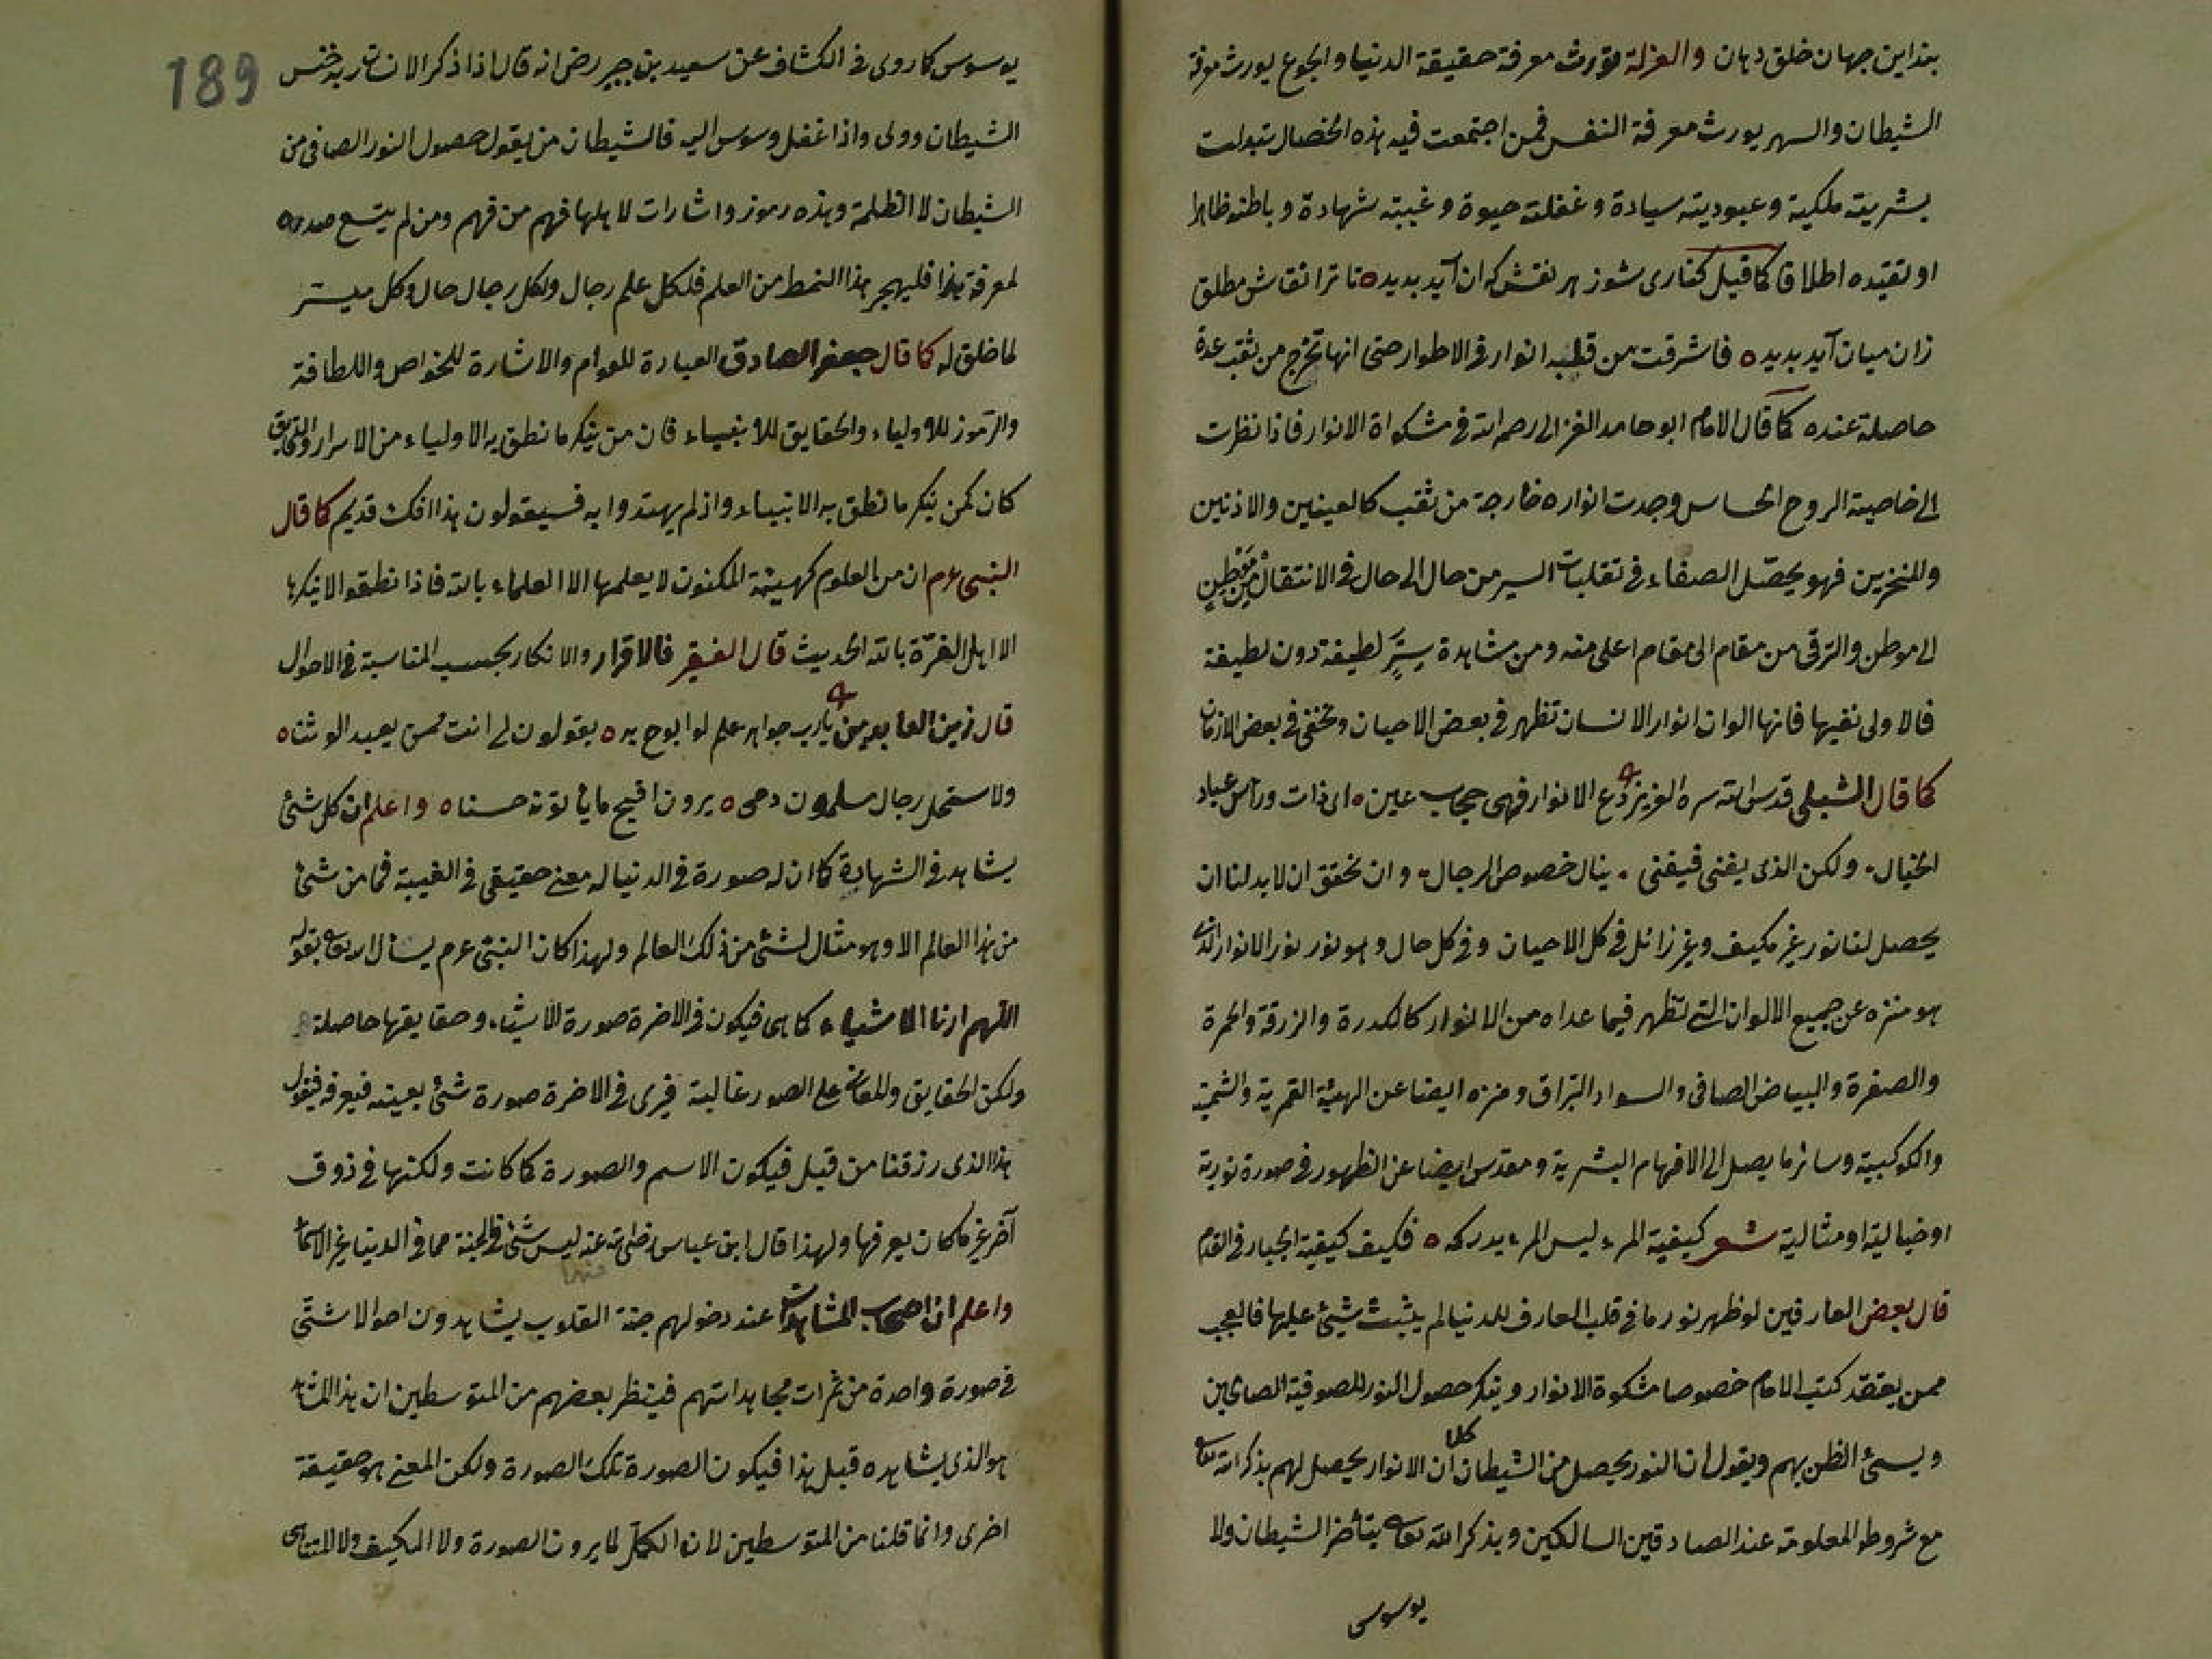 بند این جهان خلق دهان والعزلة تورث معرفة حقيقة الدنيا والجوع يورث معرفة
الشيطان والسهر يورث معرفة النفس فمن اجتمعت فيه هذه الخصال يتبدلت
بشريته ملكية وعبوديته سيادة وغفلته حيوة وغيبته شهادة وباطنه ظاهرا
او تقيده اطلاقا كما قيل كناری شوز هر نقش که ان آید بدید ه تا ترا نقاش مطلق
زان میان آید بدید ه فاشرقت من قلبه انوار فى الاطوار حتى انها تخرج من ثقب عدة
حاصلة عنده كما قال الامام ابو حامد الغزالى رحمه الله فى مشكواة الانوار فاذا نظرت
الى خاصية الروح الحاس وجدت انواره خارجة من ثقب كالعينين والاذنين
والمنخرين فهو يحصّل الصفاء فى تقلبات السير من حال الى حال فى الانتقال من موطن
الى موطن والترقى من مقام الى مقام اعلى منه ومن مشاهدة لطيفة دون لطيفة
فالاولى نفيها فانها الوان انوار الانسان تظهر فى بعض الاحيان وتخفى فى بعض الازمان
كما قال الشبلى قدس الله سره العزيز دع الانوار فهى حجاب عين ه اى ذات ورأس عباد
الخيال ولكن الذى يفنى فيفنى ينال خصوص الرجال وان نحقق ان لا بد لنا ان
يحصل لنا نور غير مكيف وغير زائل فى كل الاحيان وفى كل حال وهو نور نور الانوار الذى
هو منزه عن جميع الالوان التى تظهر فيما عداه من الانوار كالكدرة والزرقة والحمرة
والصفرة والبياض الصافى والسواد البرّاق ومنزه ايضا عن الهيئة القمرية والشمية
والكوكبية وسائر ما يصل الى الافهام البشرية ومقدس ايضا عن الظهور فى صورة نورية
او خيالية او مثالية شعر كيفية المرء ليس المرء يدركه ه فكيف كيفية الجبار فى القدم
قال بعض العارفين لو ظهر نور ما فى قلب العارف للدنيا لم يثبت شيئ عليها فالعجب
ممن يعتقد كتب الامام خصوصا مشكوة الانوار وينكر حصول النور للصوفية الصالحين
ويسئ الظن بهم ويقول ان النور يحصل من الشيطان كلا ان الانوار يحصل لهم بذكر الله تعالى
مع شروطه المعلومة عند الصادقين السالكين وبذكر الله تعالى يتأخر الشيطان ولا
يوسوس
189
يوسوس كما روى فى الكشاف عن سعيد بن جبير رضى انه قال اذا ذكر الانسان ربه خنس
الشيطان وولى واذا غفل وسوس اليه فالشيطان من يقول حصول النور الصافى من
الشيطان لا الظلمة وهذه رموز واشارات لاهلها فهم من فهم ومن لم يتسع صدره
لمعرفة هذا فليهجر هذا النمط من العلم فلكل علم رجال ولكل رجال حال وكل ميسر
لما خلق له كما قال جعفر الصادق العبارة للعوام والاشارة للخواص واللطافة
والرموز للاولياء والحقايق للانبياء فان من ينكر ما نطق به الاولياء من الاسرار والدقايق
كان كمن ينكر ما نطق به الانبياء واذ لم يهتدوا به فسيقولون هذا افك قديم كما قال
النبى عم ان من العلوم كهيئة المكنون لا يعلمها الا العلماء بالله فاذا نطقوا لا ينكرها
الا اهل الغرّة بالله الحديث قال الفقير فالاقرار والانكار بحسب المناسبة فى الاحوال
قال زين العابدين يا رب جواهر علم لو ابوح به ه يقولون لى انت ممن يعبد الوثنا ه
ولاستحل رجال مسلمون دمى ه يرون اقبح ما يأتونه حسنا ه واعلم ان كل شئ
يشاهد فى الشهادة كما ان له صورة فى الدنيا له معنى حقيقى فى الغيبة فما من شئ
من هذا العالم الا وهو مثال لشئ من ذلك العالم ولهذا كان النبى عم يسأل الله تعالى بقوله
اللهم ارنا الاشياء كما هى فيكون فى الاخرة صورة الاشياء وحقايقها حاصلة
ولكن الحقايق والمعانى على الصور غالبة فيرى فى الاخرة صورة شئ بعينه فيعرفه فيقول
هذا الذى رزقنا من قبل فيكون الاسم والصورة كما كانت ولكنها فى ذوق
آخر غير ما كان يعرفها ولهذا قال ابن عباس رضى الله عنه ليس شئ فى الجنة مما فى الدنيا غير الاسماء
واعلم ان اصحاب المشاهدات عند دخولهم جنة القلوب يشاهدون احوالا شتّى
فى صورة واحدة من ثمرات مجاهداتهم فينظر بعضهم من المتوسطين ان هذا المشاهد
هو الذى يشاهده قبل هذا فيكون الصورة تلك الصورة ولكن المعنى هو حقيقة
اخرى وانما قلنا من المتوسطين لان الكمّل لا يرون الصورة ولا المكيف ولا المتناهى